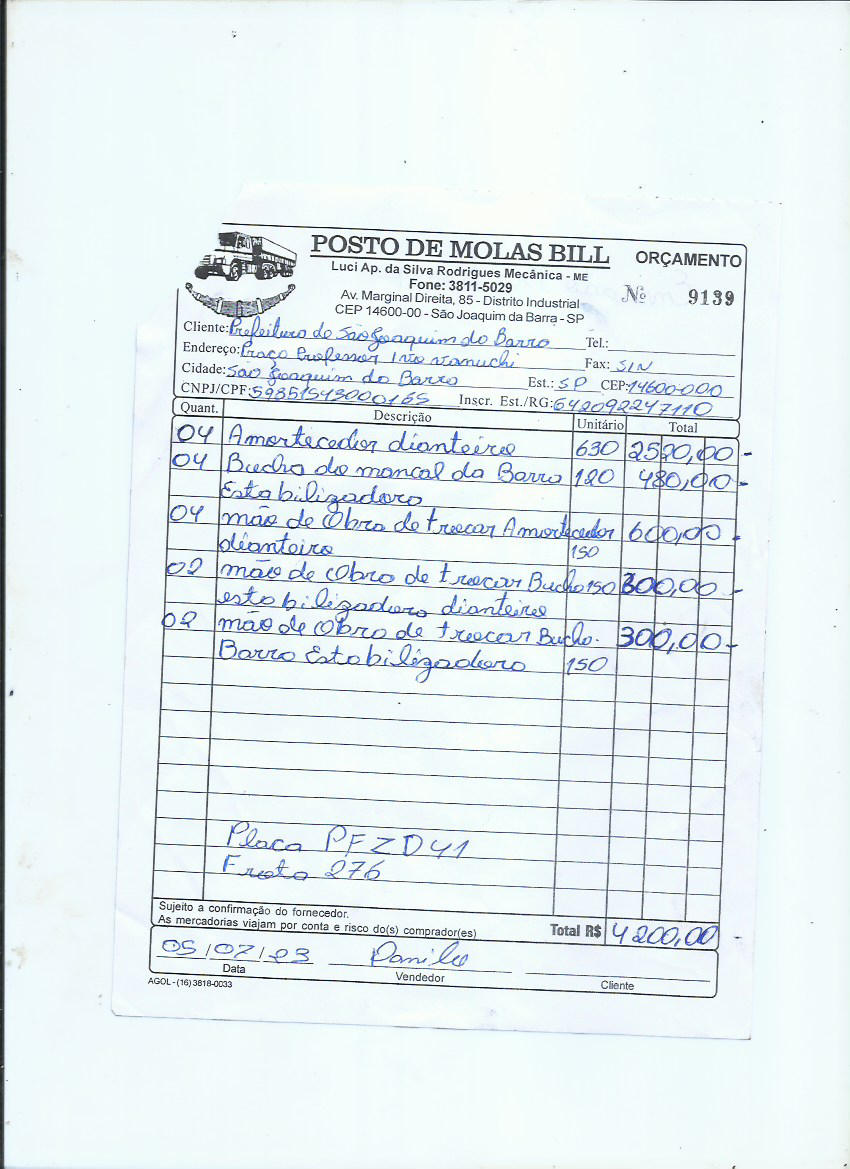 POSTO DE MOLAS BILL
ORÇAMENTO
Luci Ap. da Silva Rodrigues Mecânica - ME
Fone: 3811-5029
Nº 9139
Av. Marginal Direita, 85 - Distrito Industrial
CEP 14600-00 - São Joaquim da Barra - SP
Cliente: Prefeitura de São Joaquim do Barro Tel.:
Endereço: Praço Professor Ivo Fax: S/N
Cidade: São Joaquim do Barro Est.: SP CEP: 14600-000
CNPJ/CPF: 59851543000165 Inscr. Est./RG: 642092247110
Quant. Descrição Unitário Total
04 Amortecedor dianteiro 630 2520,00 -
04 Bucho do mancal da Barro 120 480,00 -
Estabilizadoro
04 mão de Obro de trocar Amortecedor 600,00 -
dianteiro 150
02 mão de Obro de trocar Bucho 150 300,00 -
estobilizadoro dianteiro
02 mão de Obro de trocar Bucho. 300,00 -
Barro Estobilizadoro 150
Placa PFZD41
Froto 276
Sujeito a confirmação do fornecedor.
As mercadorias viajam por conta e risco do(s) comprador(es)
Total R$ 4200,00
05/07/23 Danilo
Data Vendedor Cliente
AGOL - (16) 3818-0033